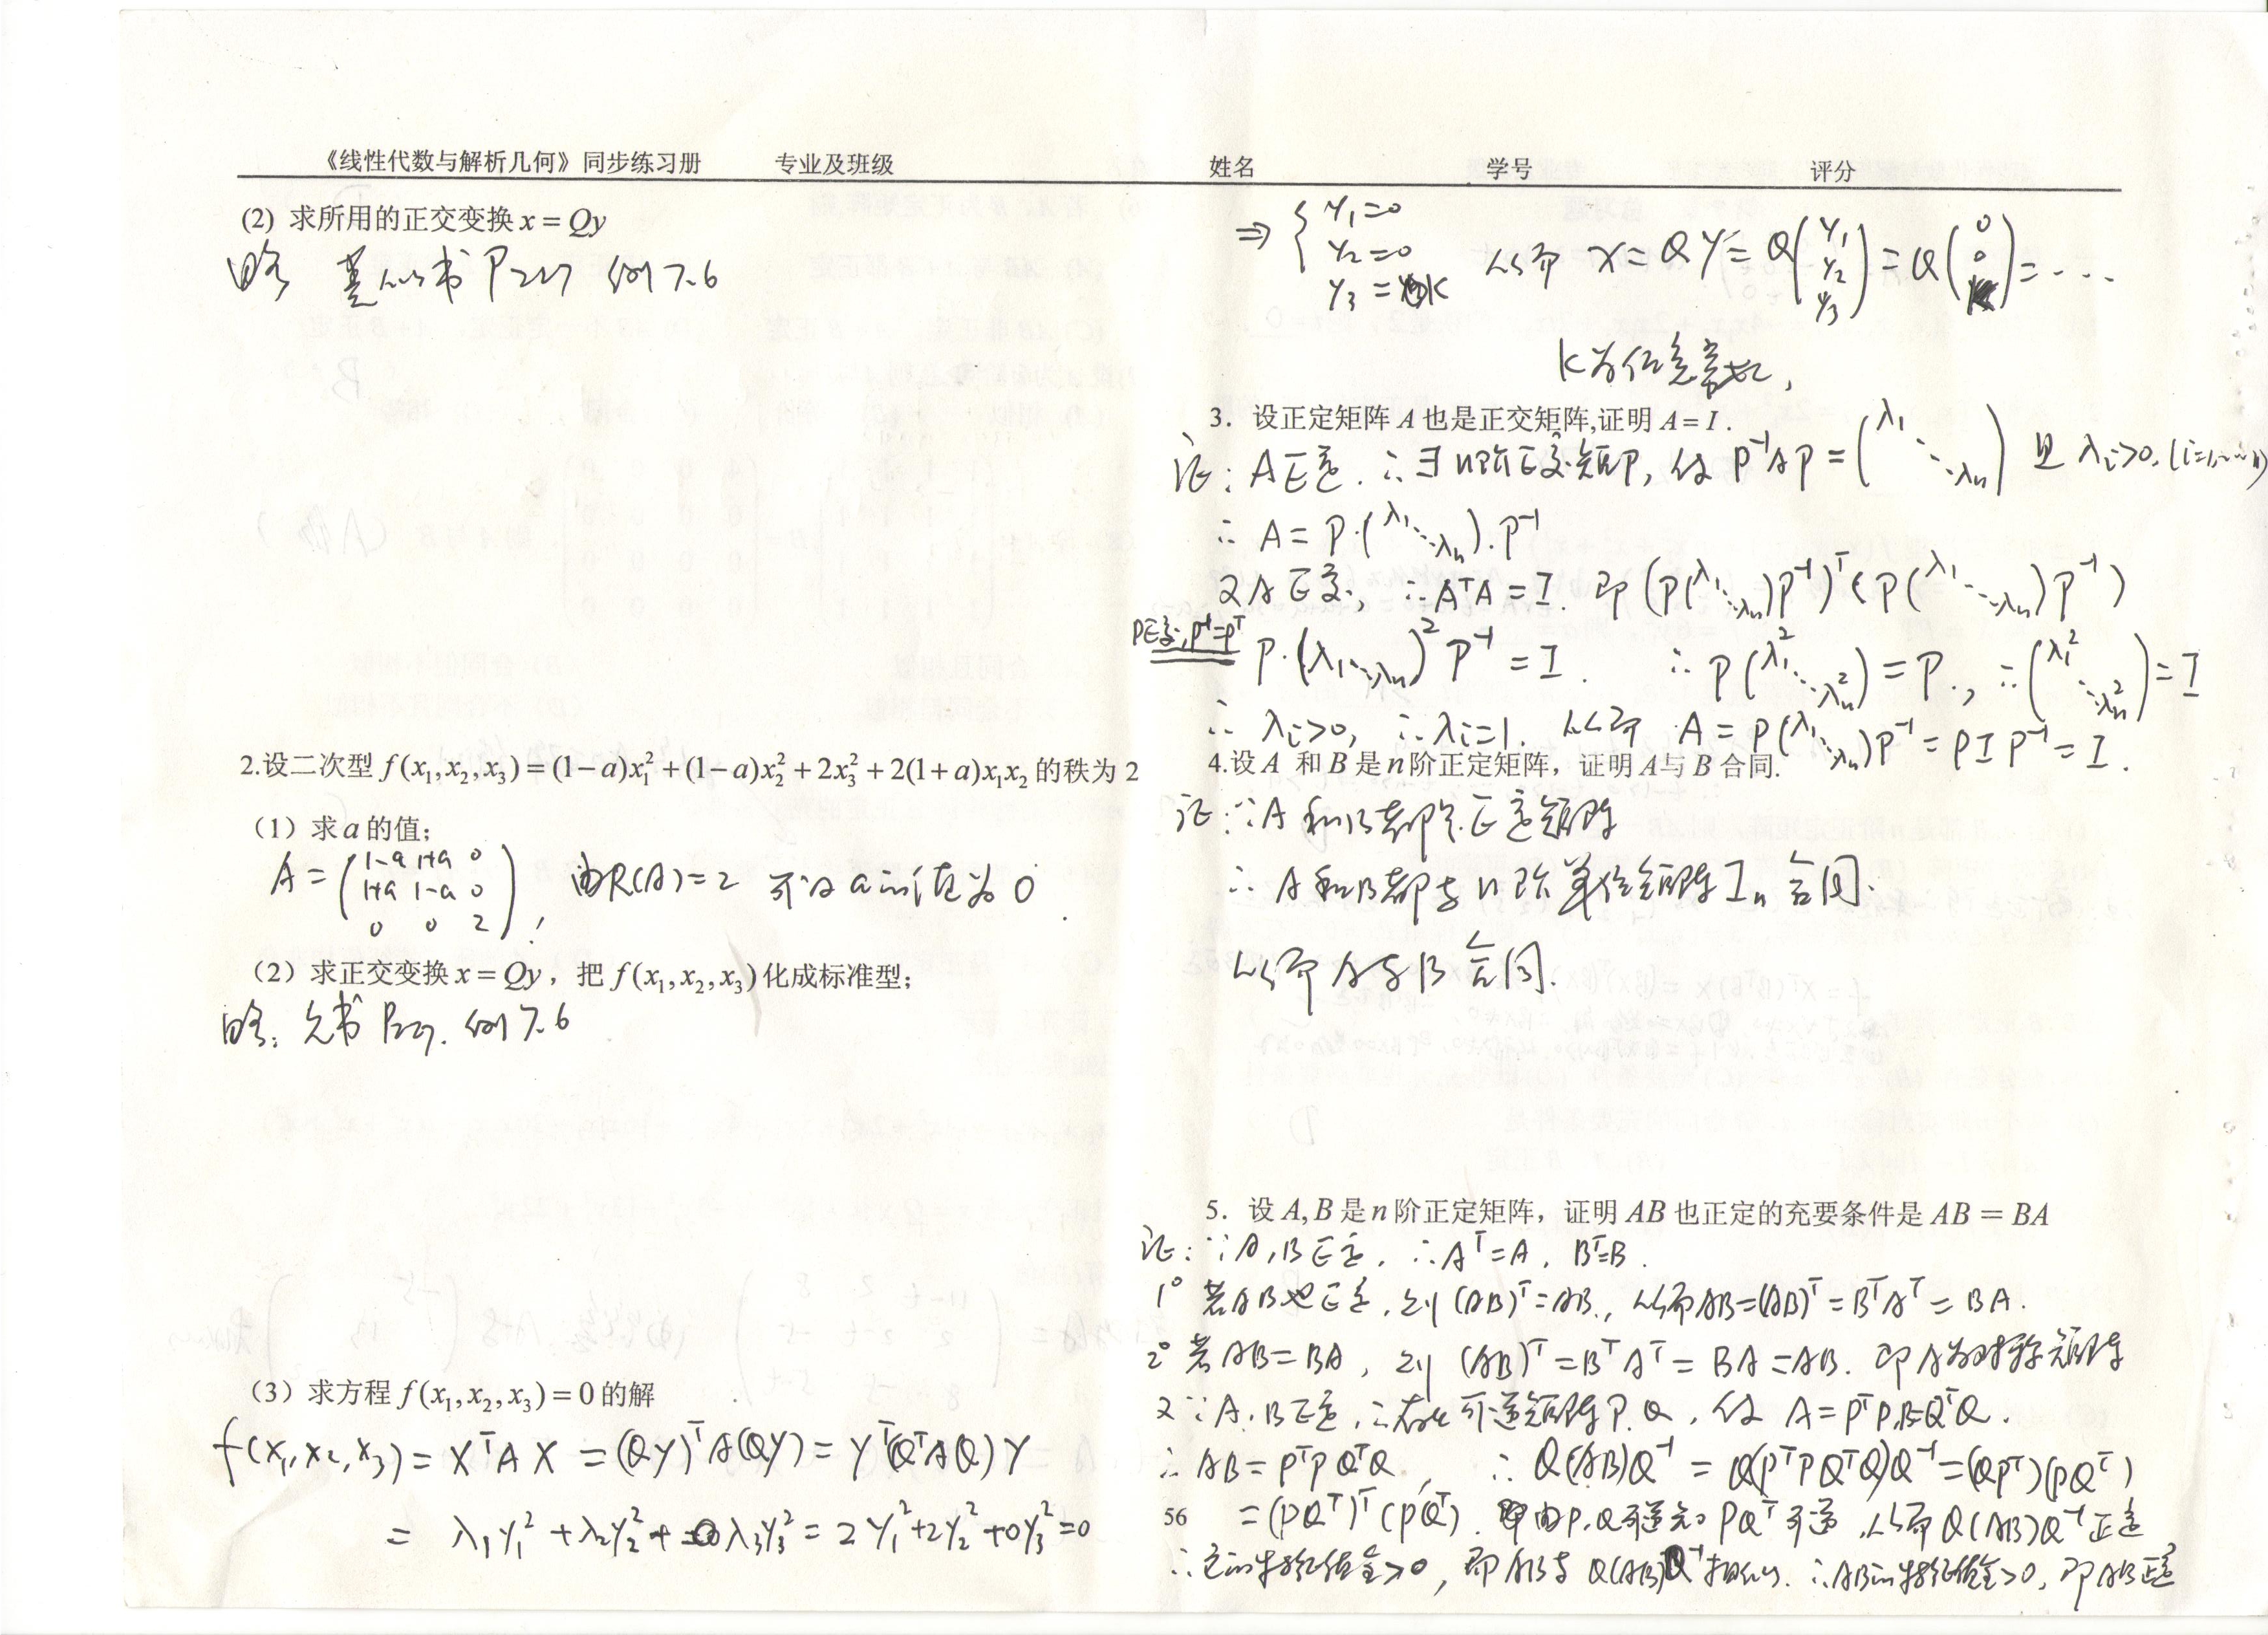 《线性代数与解析几何》同步练习册 专业及班级 姓名 学号 评分
(2) 求所用的正交变换 x = Qy
略 类似书 P227 例7.6
2.设二次型 f(x₁,x₂,x₃) = (1−a)x₁² + (1−a)x₂² + 2x₃² + 2(1+a)x₁x₂ 的秩为 2
（1）求 a 的值；
A = (1-a 1+a 0
1+a 1-a 0
0 0 2), 由R(A)=2 可得 a的值为 0.
（2）求正交变换 x = Qy，把 f(x₁,x₂,x₃) 化成标准型；
略. 见书 P227. 例7.6
（3）求方程 f(x₁,x₂,x₃) = 0 的解
f(x₁,x₂,x₃) = XᵀAX = (QY)ᵀA(QY) = Yᵀ(QᵀAQ)Y
= λ₁y₁² + λ₂y₂² + λ₃y₃² = 2y₁²+2y₂²+0y₃²=0
⇒ { y₁=0
y₂=0
y₃=k 从而 X = QY = Q(y₁ y₂ y₃) = Q(0 0 k) = ....
k为任意常数,
3．设正定矩阵 A 也是正交矩阵,证明 A = I .
证: A正定. ∴∃n阶正交矩阵P, 使 P⁻¹AP = (λ₁ ⋱ λₙ) 且 λᵢ>0, (i=1,…,n)
∴ A = P·(λ₁ ⋱ λₙ)·P⁻¹
又A正交, ∴AᵀA = I. 即 (P(λ₁ ⋱ λₙ)P⁻¹)ᵀ(P(λ₁ ⋱ λₙ)P⁻¹)
P正交,P⁻¹=Pᵀ P·(λ₁ ⋱ λₙ)²P⁻¹ = I. ∴ P(λ₁² ⋱ λₙ²) = P., ∴ (λ₁² ⋱ λₙ²) = I
∵ λᵢ>0, ∴ λᵢ=1. 从而 A = P(λ₁ ⋱ λₙ)P⁻¹ = PIP⁻¹ = I.
4.设 A 和 B 是 n 阶正定矩阵，证明 A与 B 合同.
证: ∵A和B都是n阶正定矩阵
∴ A和B都与n阶单位矩阵Iₙ合同.
从而 A与B合同.
5．设 A, B 是 n 阶正定矩阵，证明 AB 也正定的充要条件是 AB = BA
证: ∵A,B正定, ∴Aᵀ=A, Bᵀ=B.
1° 若AB也正定, 则 (AB)ᵀ=AB, 从而AB=(AB)ᵀ=BᵀAᵀ=BA.
2° 若AB=BA, 则 (AB)ᵀ=BᵀAᵀ=BA=AB. 即A为对称矩阵
又∵A,B正定, ∴存在可逆矩阵P,Q, 使 A=PᵀP,B=QᵀQ.
∴ AB=PᵀPQᵀQ, ∴ Q(AB)Q⁻¹ = Q(PᵀPQᵀQ)Q⁻¹=(QPᵀ)(PQᵀ)
=(PQᵀ)ᵀ(PQᵀ). 由P,Q可逆知 PQᵀ可逆, 从而Q(AB)Q⁻¹正定
∴它的特征值全>0, 即AB与 Q(AB)Q⁻¹相似. ∴AB的特征值全>0, 即AB正定
56